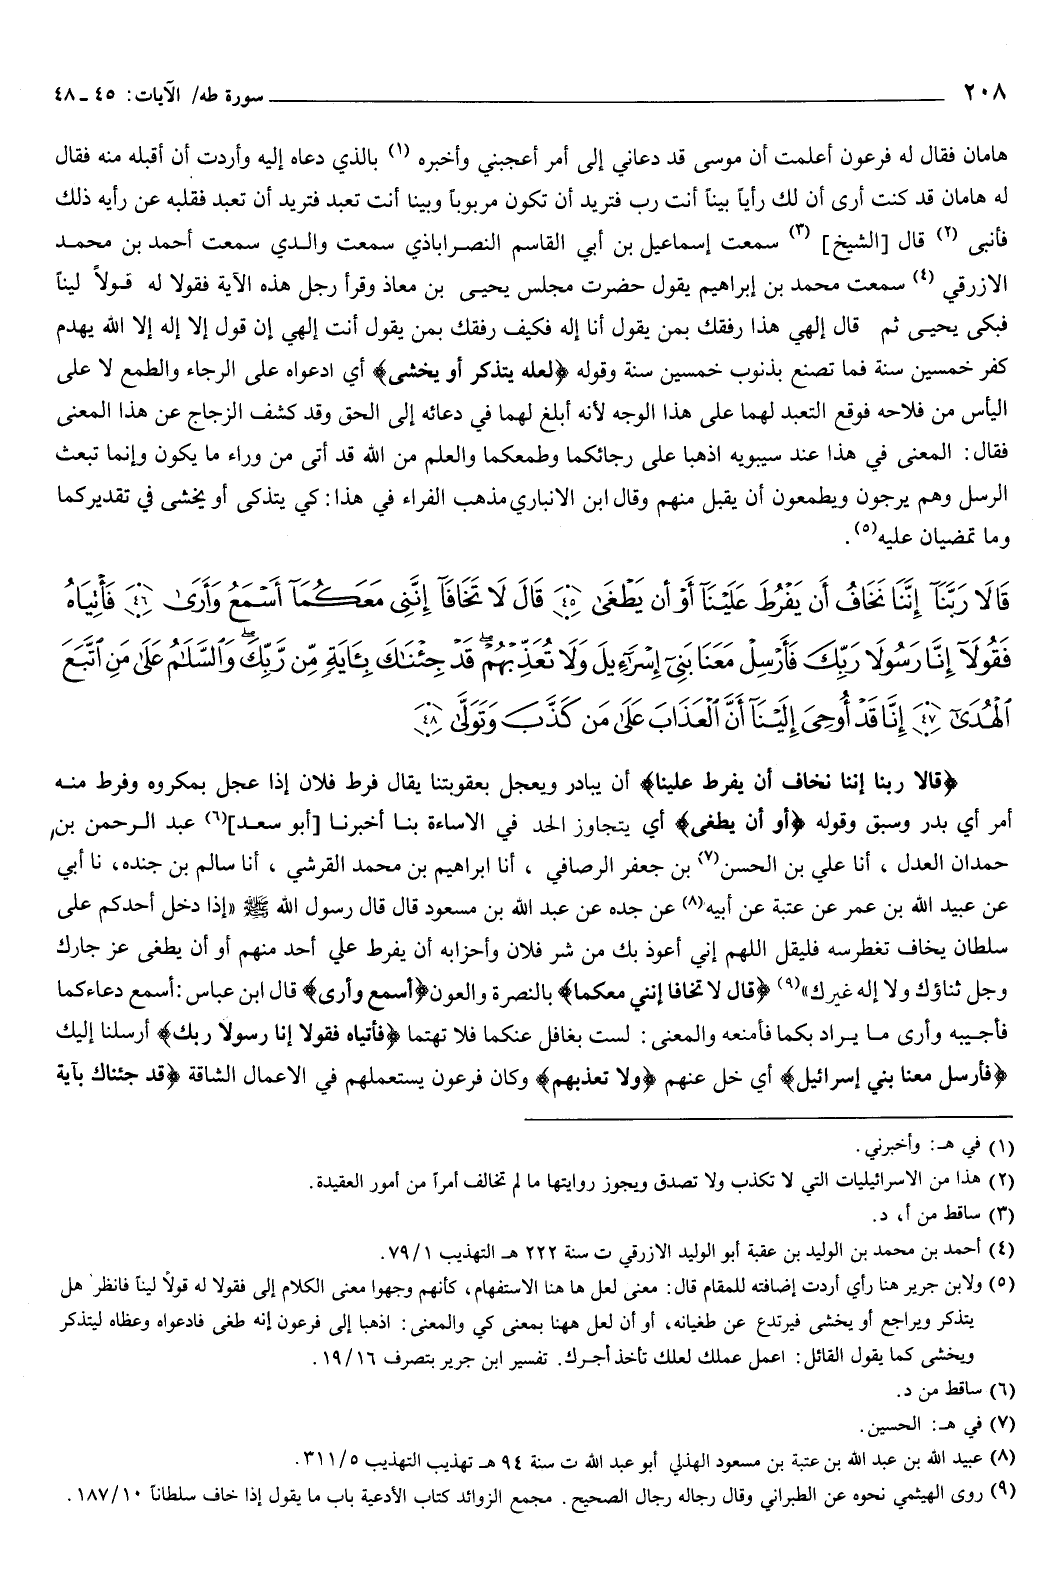 ٢٠٨ سورة طه/ الآيات: ٤٥ ـ ٤٨
هامان فقال له فرعون أعلمت أن موسى قد دعاني إلى أمر أعجبني وأخبره (١) بالذي دعاه إليه وأردت أن أقبله منه فقال
له هامان قد كنت أرى أن لك رأياً بيناً أنت رب فتريد أن تكون مربوباً وبينا أنت تعبد فتريد أن تعبد فقلبه عن رأيه ذلك
فأنبى (٢) قال [الشيخ] (٣) سمعت إسماعيل بن أبي القاسم النصراباذي سمعت والدي سمعت أحمد بن محمد
الازرقي (٤) سمعت محمد بن إبراهيم يقول حضرت مجلس يحيى بن معاذ وقرأ رجل هذه الآية فقولا له قولاً ليناً
فبكى يحيى ثم قال إلهي هذا رفقك بمن يقول أنا إله فكيف رفقك بمن يقول أنت إلهي إن قول إلا إله إلا الله يهدم
كفر خمسين سنة فما تصنع بذنوب خمسين سنة وقوله ﴿لعله يتذكر أو يخشى﴾ أي ادعواه على الرجاء والطمع لا على
اليأس من فلاحه فوقع التعبد لهما على هذا الوجه لأنه أبلغ لهما في دعائه إلى الحق وقد كشف الزجاج عن هذا المعنى
فقال: المعنى في هذا عند سيبويه اذهبا على رجائكما وطمعكما والعلم من الله قد أتى من وراء ما يكون وإنما تبعث
الرسل وهم يرجون ويطمعون أن يقبل منهم وقال ابن الانباري مذهب الفراء في هذا: كي يتذكى أو يخشى في تقديركما
وما تمضيان عليه(٥).
قَالَا رَبَّنَآ إِنَّنَا نَخَافُ أَن يَفْرُطَ عَلَيْنَآ أَوْ أَن يَطْغَىٰ ﴿٤٥﴾ قَالَ لَا تَخَافَآ إِنَّنِى مَعَكُمَآ أَسْمَعُ وَأَرَىٰ ﴿٤٦﴾ فَأْتِيَاهُ
فَقُولَآ إِنَّا رَسُولَا رَبِّكَ فَأَرْسِلْ مَعَنَا بَنِىٓ إِسْرَٰٓءِيلَ وَلَا تُعَذِّبْهُمْ ۖ قَدْ جِئْنَٰكَ بِـَٔايَةٍ مِّن رَّبِّكَ ۖ وَٱلسَّلَٰمُ عَلَىٰ مَنِ ٱتَّبَعَ
ٱلْهُدَىٰٓ ﴿٤٧﴾ إِنَّا قَدْ أُوحِىَ إِلَيْنَآ أَنَّ ٱلْعَذَابَ عَلَىٰ مَن كَذَّبَ وَتَوَلَّىٰ ﴿٤٨﴾
﴿قالا ربنا إننا نخاف أن يفرط علينا﴾ أن يبادر ويعجل بعقوبتنا يقال فرط فلان إذا عجل بمكروه وفرط منه
أمر أي بدر وسبق وقوله ﴿أو أن يطغى﴾ أي يتجاوز الحد في الاساءة بنا أخبرنا [أبو سعد](٦) عبد الرحمن بن
حمدان العدل ، أنا علي بن الحسن(٧) بن جعفر الرصافي ، أنا ابراهيم بن محمد القرشي ، أنا سالم بن جنده، نا أبي
عن عبيد الله بن عمر عن عتبة عن أبيه(٨) عن جده عن عبد الله بن مسعود قال قال رسول الله ﷺ «إذا دخل أحدكم على
سلطان يخاف تغطرسه فليقل اللهم إني أعوذ بك من شر فلان وأحزابه أن يفرط علي أحد منهم أو أن يطغى عز جارك
وجل ثناؤك ولا إله غيرك»(٩) ﴿قال لا تخافا إنني معكما﴾ بالنصرة والعون ﴿أسمع وأرى﴾ قال ابن عباس: أسمع دعاءكما
فأجيبه وأرى ما يراد بكما فأمنعه والمعنى: لست بغافل عنكما فلا تهتما ﴿فأتياه فقولا إنا رسولا ربك﴾ أرسلنا إليك
﴿فأرسل معنا بني إسرائيل﴾ أي خل عنهم ﴿ولا تعذبهم﴾ وكان فرعون يستعملهم في الاعمال الشاقة ﴿قد جئناك بآية
(١) في هـ: وأخبرني.
(٢) هذا من الاسرائيليات التي لا تكذب ولا تصدق ويجوز روايتها ما لم تخالف أمراً من أمور العقيدة.
(٣) ساقط من أ، د.
(٤) أحمد بن محمد بن الوليد بن عقبة أبو الوليد الازرقي ت سنة ٢٢٢ هـ التهذيب ٧٩/١.
(٥) ولابن جرير هنا رأي أردت إضافته للمقام قال: معنى لعل ها هنا الاستفهام، كأنهم وجهوا معنى الكلام إلى فقولا له قولاً ليناً فانظر هل
يتذكر ويراجع أو يخشى فيرتدع عن طغيانه، أو أن لعل ههنا بمعنى كي والمعنى: اذهبا إلى فرعون إنه طغى فادعواه وعظاه ليتذكر
ويخشى كما يقول القائل: اعمل عملك لعلك تأخذ أجرك. تفسير ابن جرير بتصرف ١٩/١٦.
(٦) ساقط من د.
(٧) في هـ: الحسين.
(٨) عبيد الله بن عبد الله بن عتبة بن مسعود الهذلي أبو عبد الله ت سنة ٩٤ هـ تهذيب التهذيب ٣١١/٥.
(٩) روى الهيثمي نحوه عن الطبراني وقال رجاله رجال الصحيح. مجمع الزوائد كتاب الأدعية باب ما يقول إذا خاف سلطاناً ١٨٧/١٠.